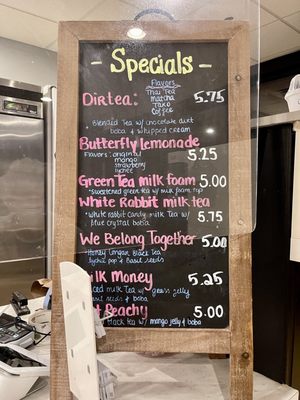 - Specials -
Flavors
Thai Tea
Matcha
Taro
Coffee
Dirtea: 5.75
Blended Tea w/ chocolate dust
boba & whipped cream
Butterfly lemonade
Flavors: original
mango
strawberry
lychee
5.25
Green Tea milk foam 5.00
*sweetened green tea w/ milk foam top
White Rabbit milk tea
*White rabbit candy milk Tea w/
blue crystal boba
5.75
We Belong Together 5.00
Honey Longan Black tea
lychee pop & Basil seeds
ilk Money 5.25
iced milk Tea w/ grass jelly
basil seeds & boba
t Peachy 5.00
Black tea w/ mango jelly & boba